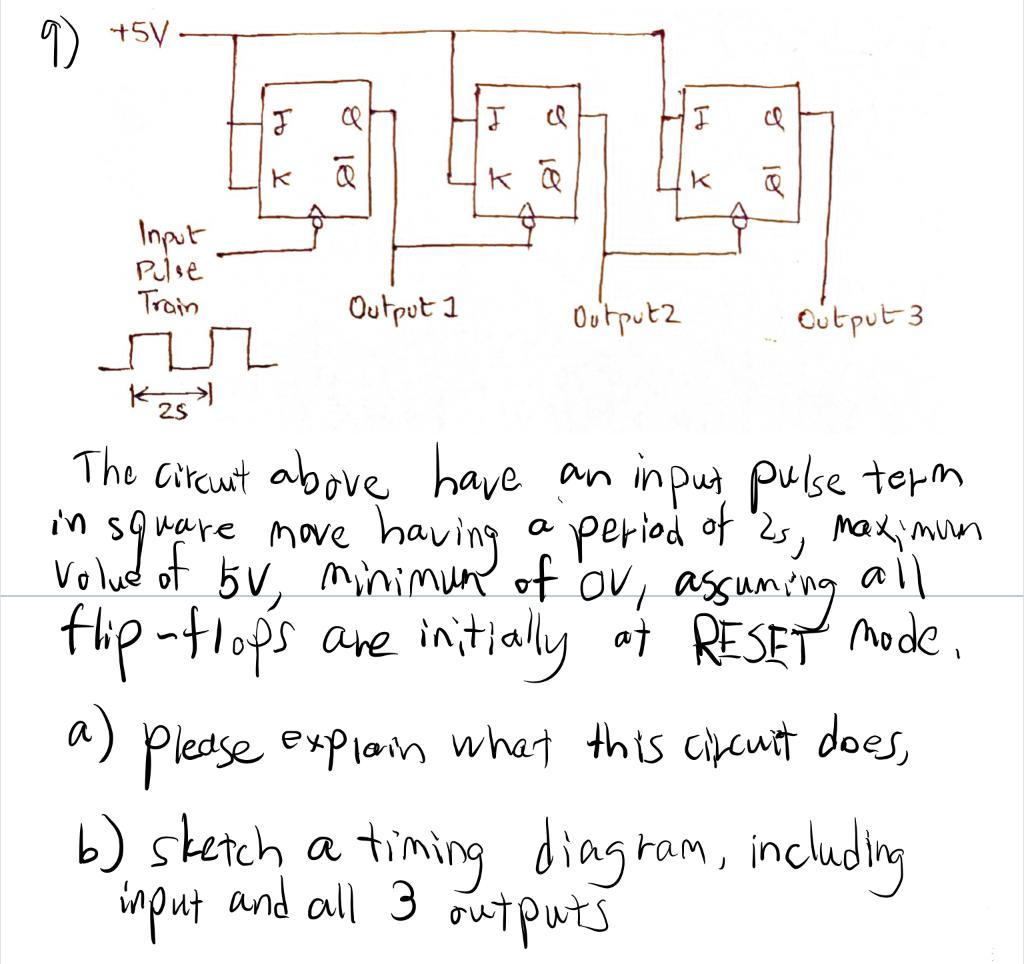 9) +5V
J Q J Q J Q
K Q̅ K Q̅ K Q̅
Input
Pulse
Train
Output 1
Output 2
Output 3
2s
The circuit above have an input pulse term
in square move having a period of 2s, maximum
value of 5V, minimum of 0V, assuming all
flip-flops are initially at RESET mode.
a) please explain what this circuit does,
b) sketch a timing diagram, including
input and all 3 outputs